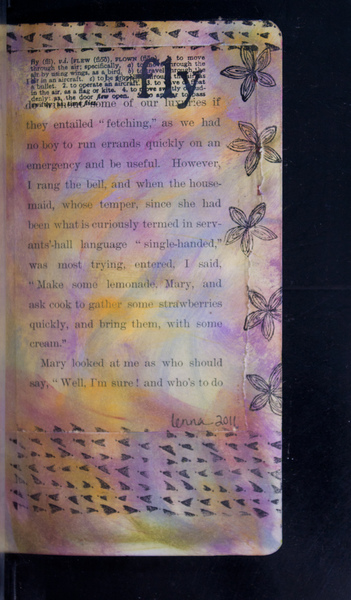 fly (flī), v.i. [FLEW (flōō), FLOWN (flōn)], to move
through the air; specifically, a) to through the
air by using wings, as a bird. b) to travel through the
air in an aircraft. c) to be
a bullet. 2. to operate an aircraft. 3. to wave or float
in the air, as a flag or kite. 4. to move swiftly
denly: as, the door flew open. pass
fly
some of our luxuries if
they entailed "fetching," as we had
no boy to run errands quickly on an
emergency and be useful. However,
I rang the bell, and when the house-
maid, whose temper, since she had
been what is curiously termed in serv-
ants'-hall language "single-handed,"
was most trying, entered, I said,
"Make some lemonade, Mary, and
ask cook to gather some strawberries
quickly, and bring them, with some
cream."
Mary looked at me as who should
say, "Well, I'm sure! and who's to do
lenna 2011